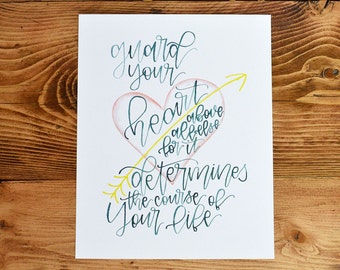 guard
your
heart
above
all else
for it
determines
the course of
your life